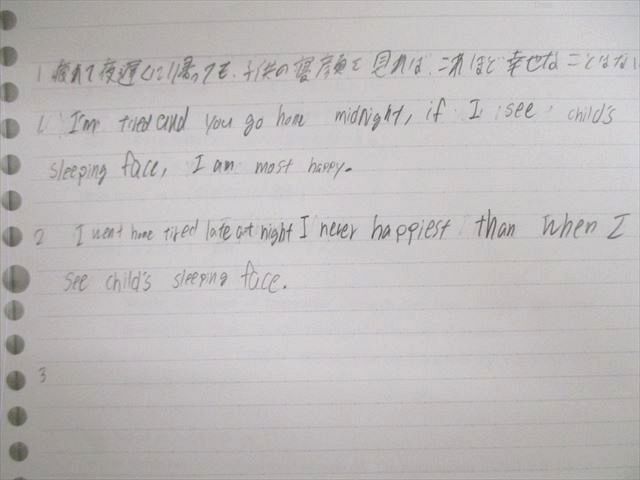 1 疲れて夜遅くに帰っても、子供の寝顔を見れば、これほど幸せなことはない
1. I'm tired and you go home midnight, if I see child's
sleeping face, I am most happy.
2 I went home tired late at night I never happiest than when I
see child's sleeping face.
3